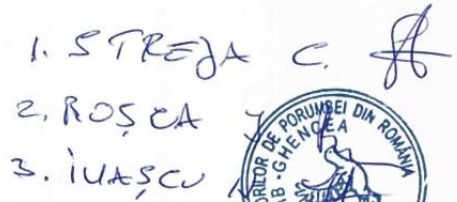 1. STREJA C.
2. ROȘCA
3. IVAȘCU
RILOR DE PORUMBEI DIN ROMÂNIA
GHENCEA